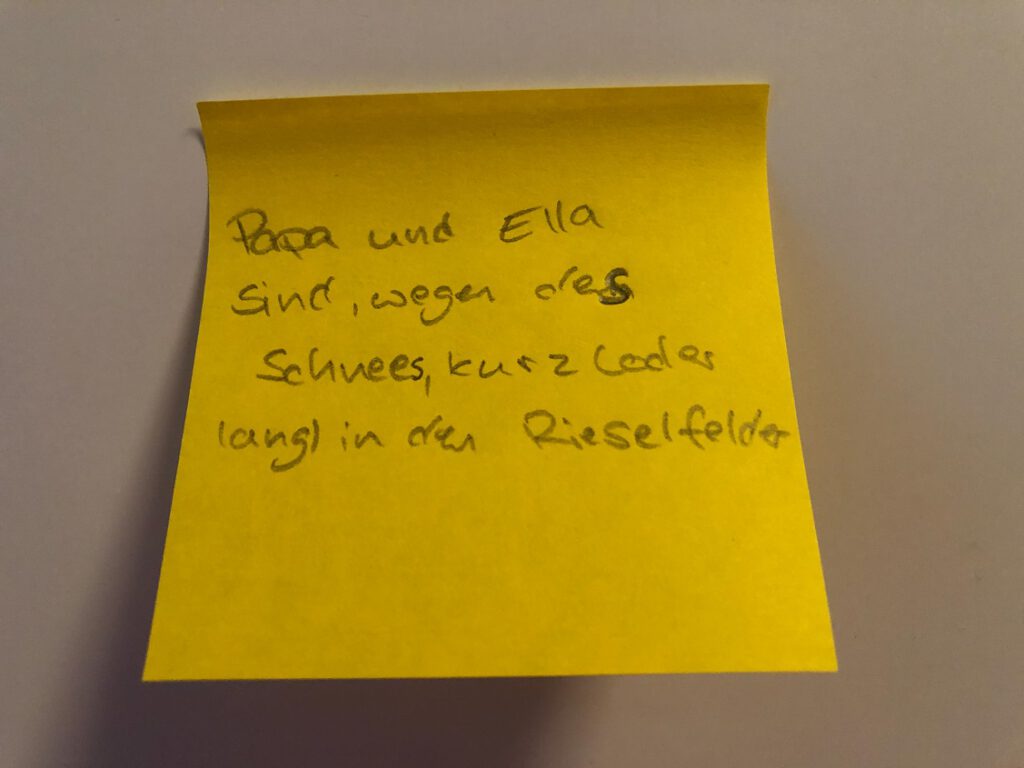 Papa und Ella
sind, wegen des
Schnees, kurz (oder
lang) in den Rieselfelder